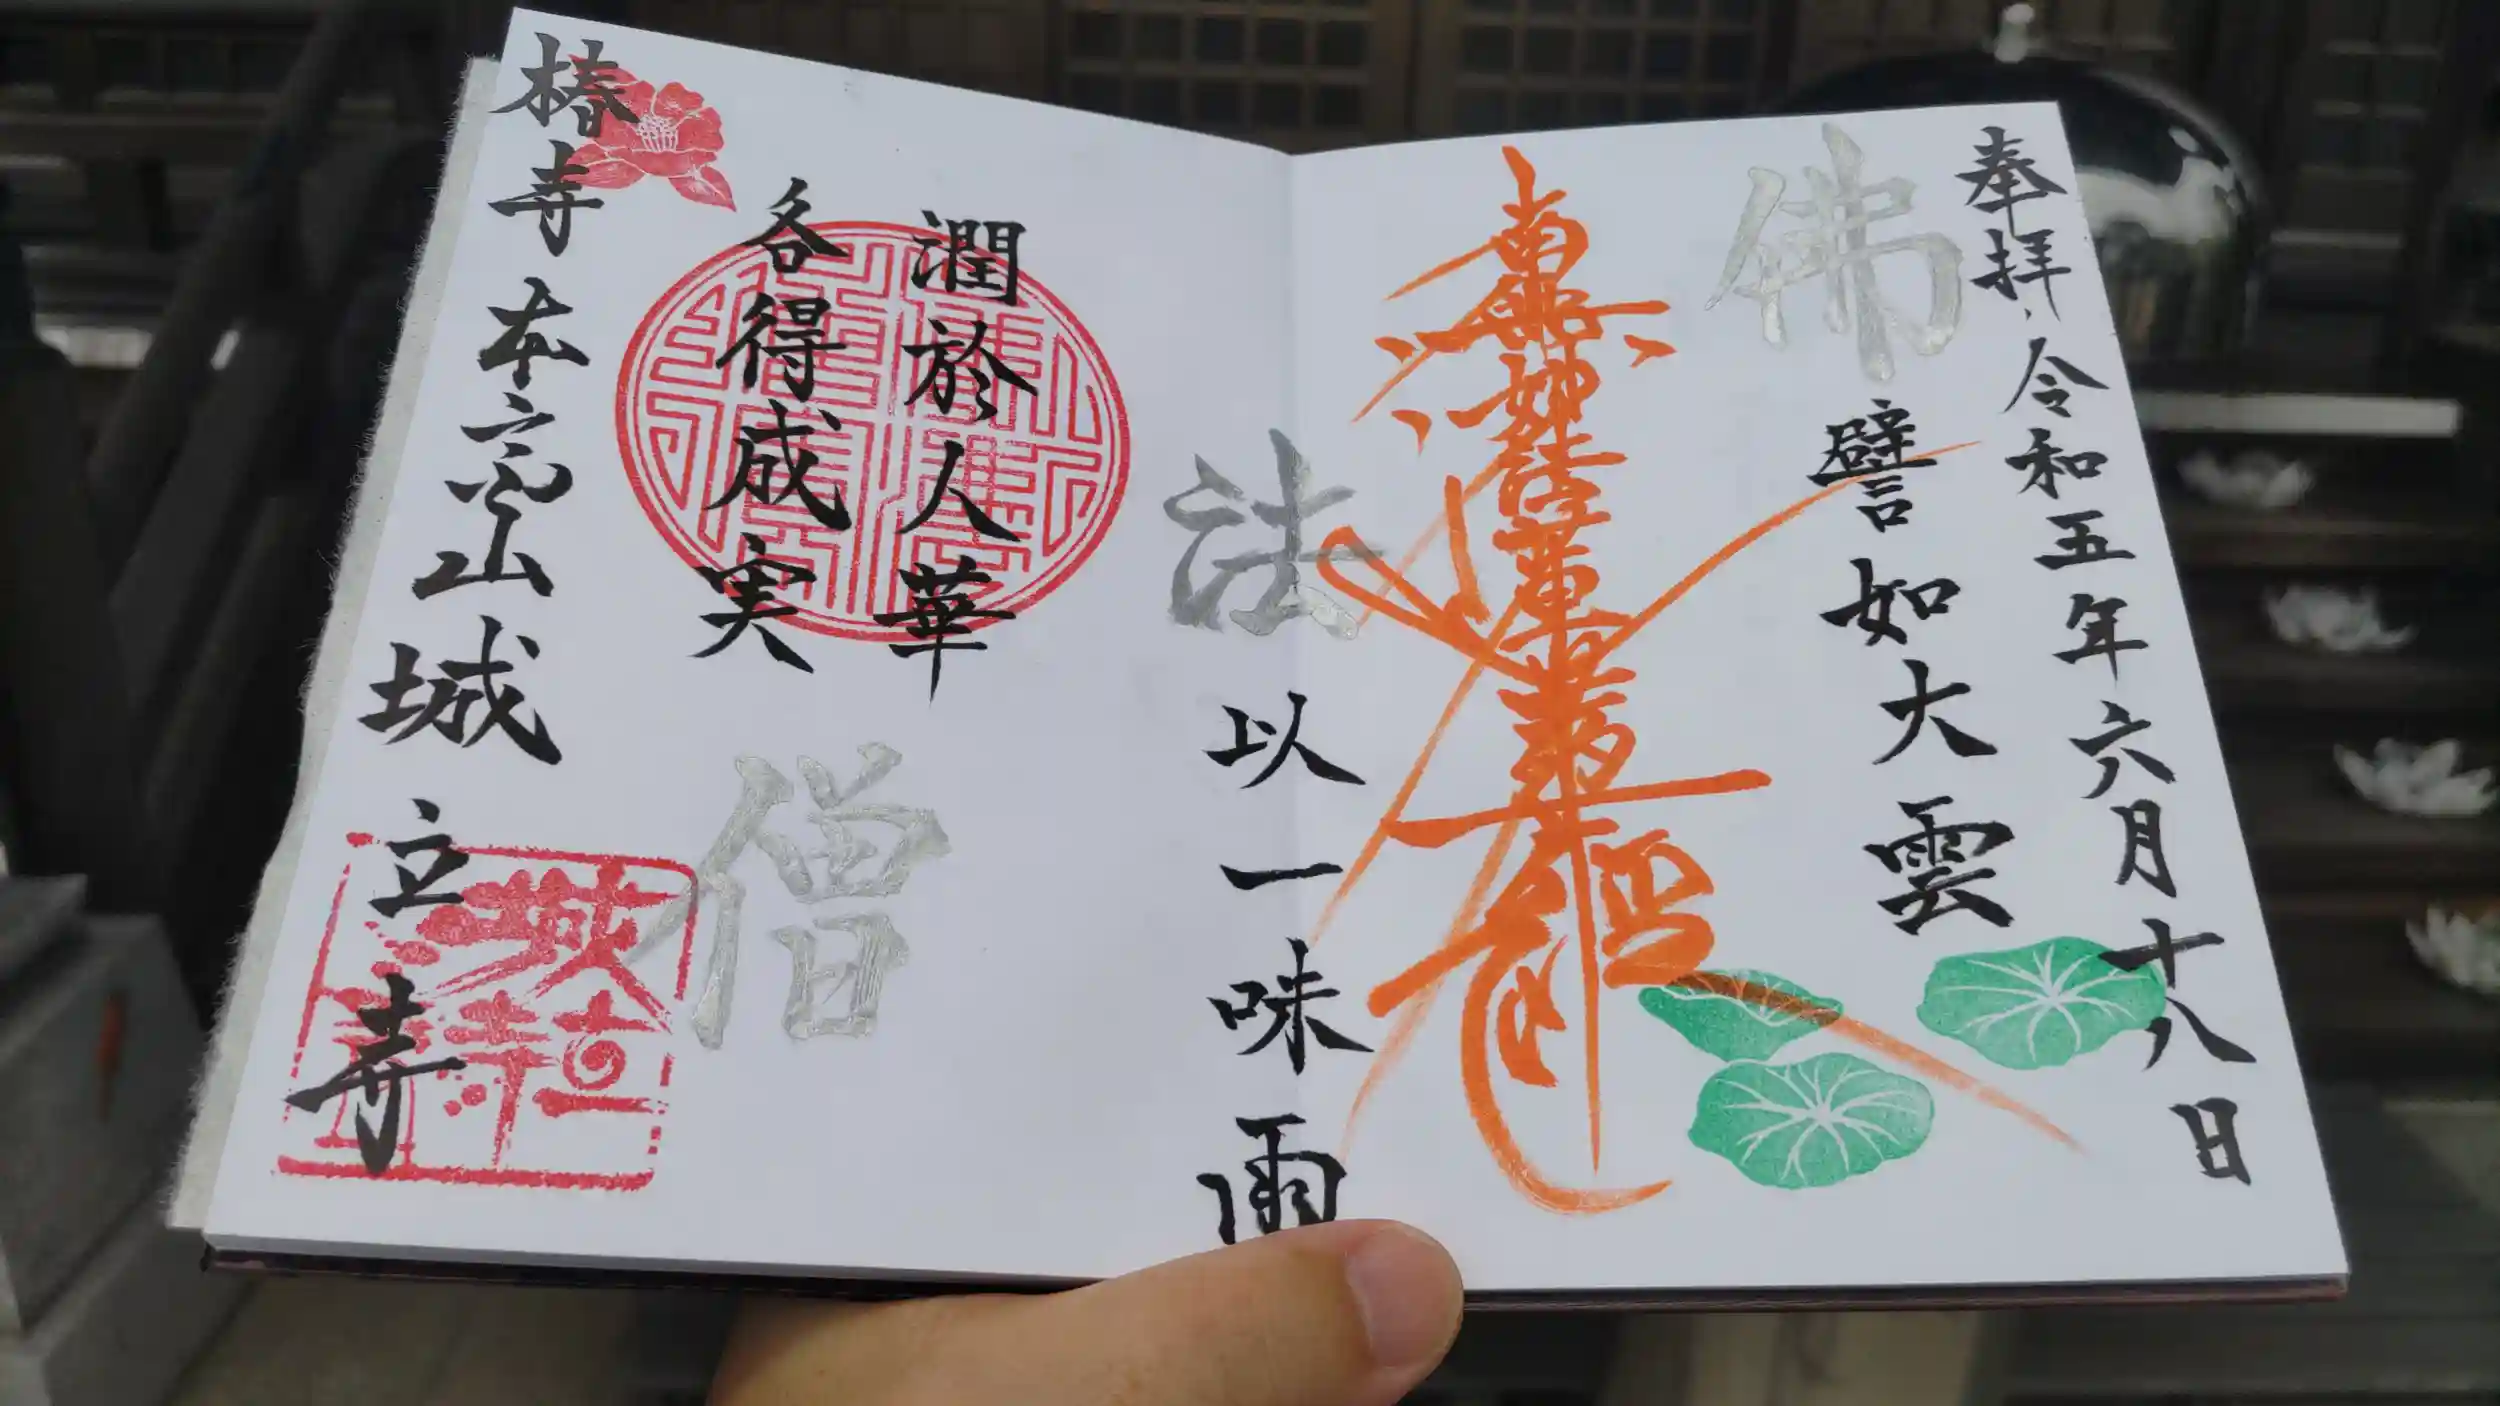 奉拝 令和五年六月十八日
佛
譬如大雲
南無妙法蓮華経
法
以一味雨
潤於人華
各得成実
僧
椿寺 本立山城立寺
城立寺